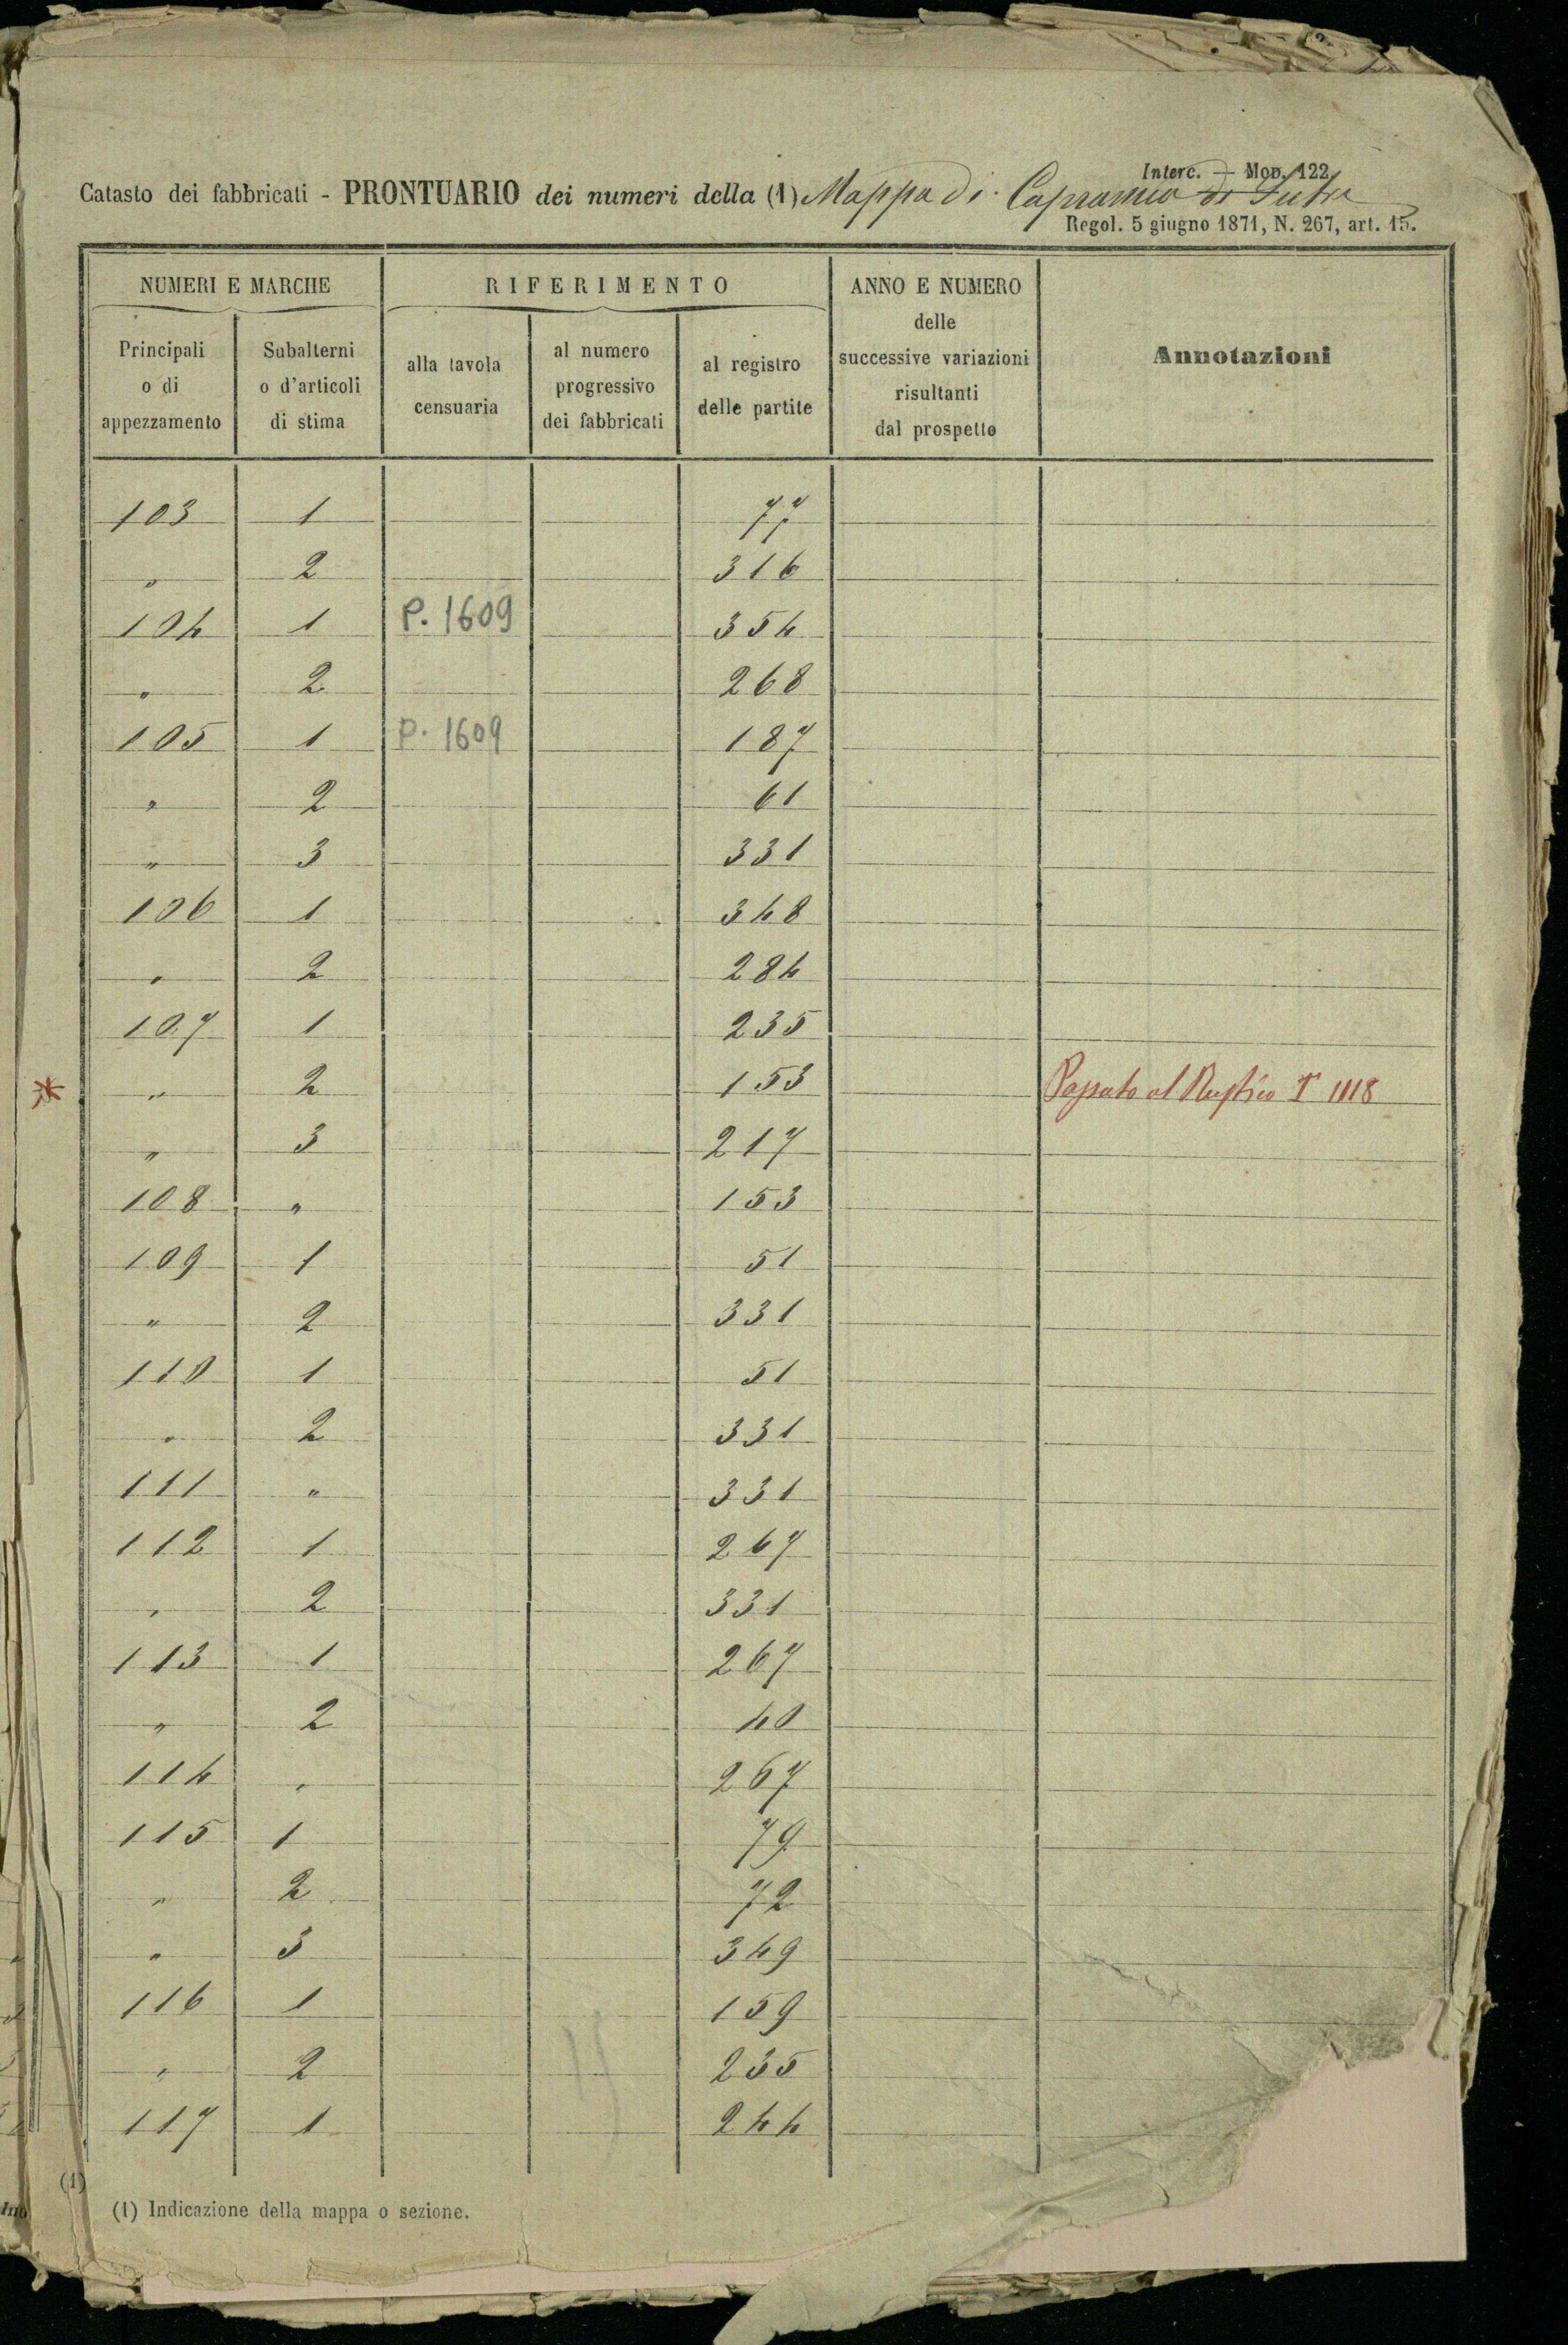 Interc. — Mod. 122
Catasto dei fabbricati - PRONTUARIO dei numeri della (1) Mappa di Capranica di Sutri
Regol. 5 giugno 1871, N. 267, art. 15.
NUMERI E MARCHE RIFERIMENTO ANNO E NUMERO delle successive variazioni risultanti dal prospetto Annotazioni
Principali o di appezzamento Subalterni o d'articoli di stima alla tavola censuaria al numero progressivo dei fabbricati al registro delle partite
103 1 77
" 2 316
104 1 P. 1609 354
" 2 268
105 1 P. 1609 187
" 2 61
" 3 331
106 1 348
" 2 284
107 1 235
* " 2 153 Passato al Rustico 1118
" 3 217
108 " 153
109 1 51
" 2 331
110 1 51
" 2 331
111 " 331
112 1 267
" 2 331
113 1 267
" 2 40
114 " 267
115 1 79
" 2 72
" 3 349
116 1 159
" 2 235
117 1 244
(1)
(1) Indicazione della mappa o sezione.